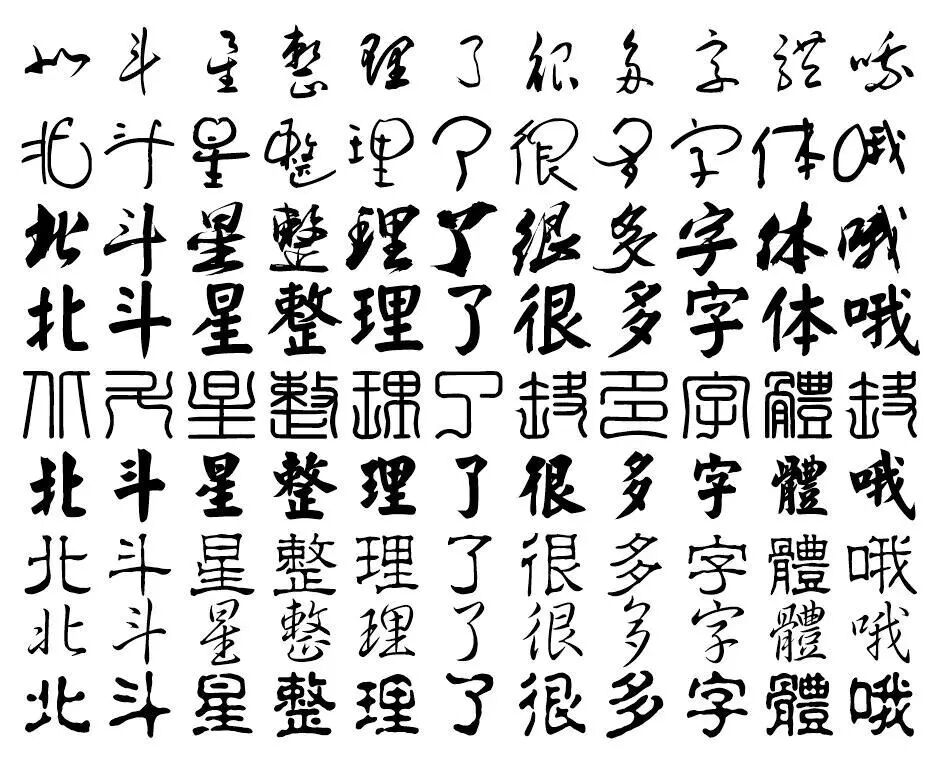 北斗星整理了很多字體哦
北斗星整理了很多字体哦
北斗星整理了很多字体哦
北斗星整理了很多字体哦
北斗星整理了缺多字體缺
北斗星整理了很多字體哦
北斗星整理了很多字體哦
北斗星整理了很多字體哦
北斗星整理了很多字體哦